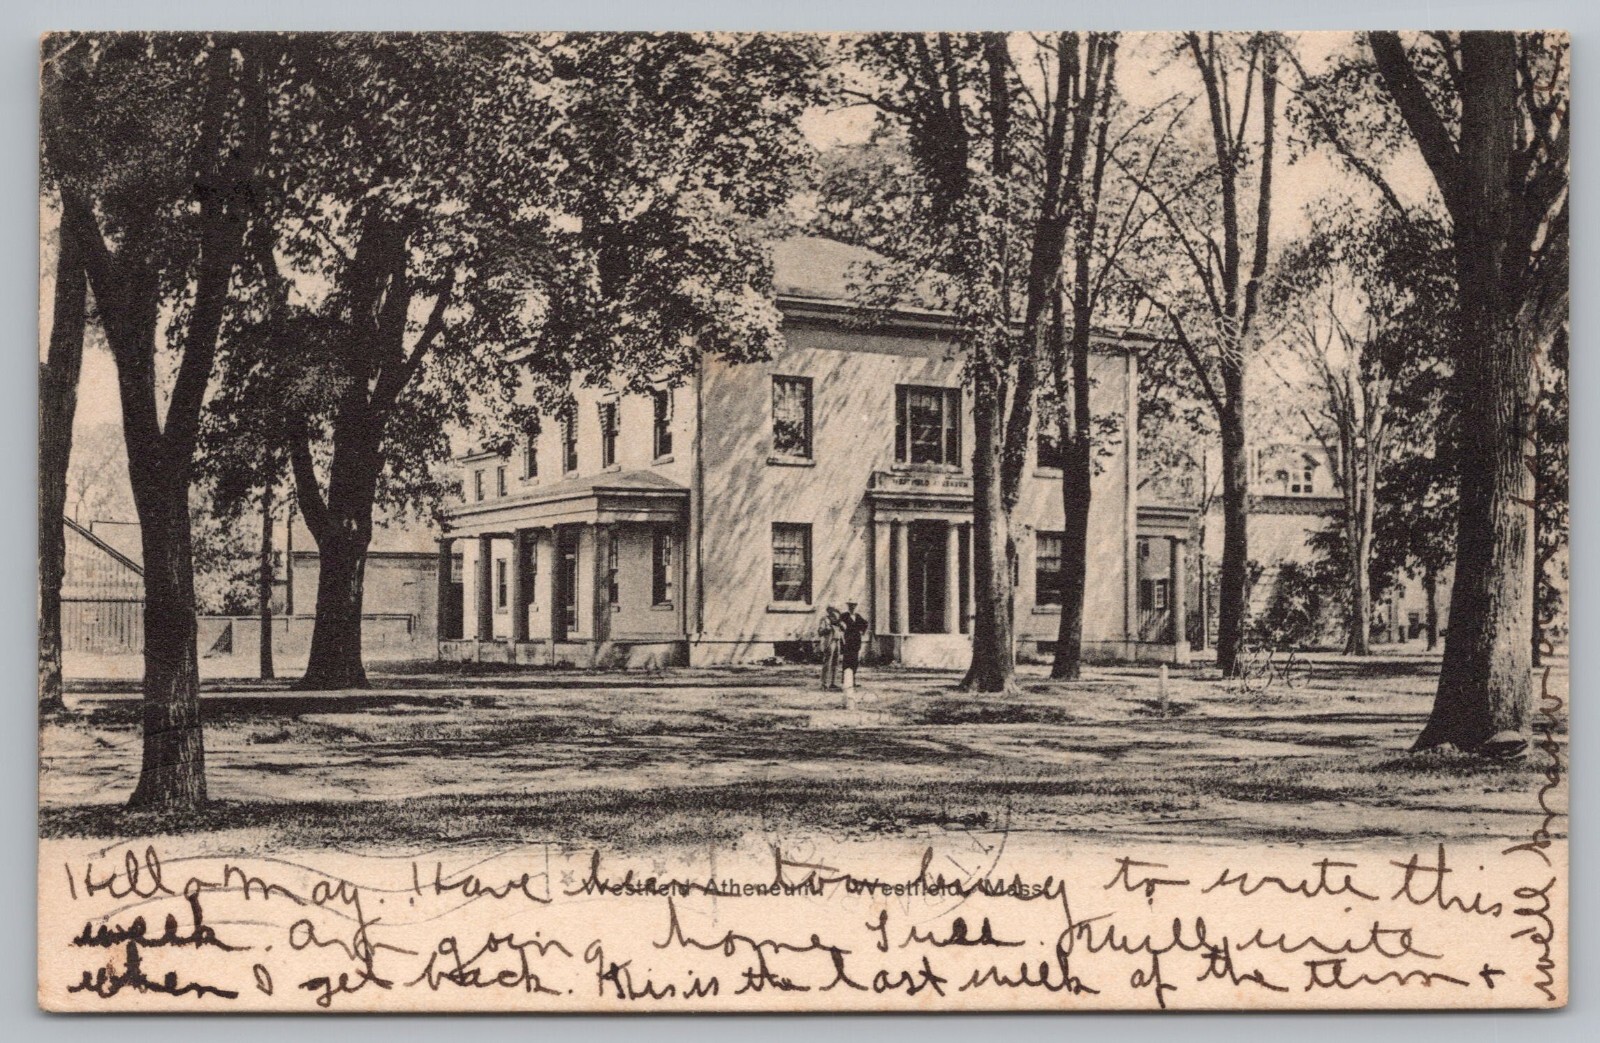 WESTFIELD ATHENEUM
Westfield Atheneum, Westfield, Mass.
Hello May. Have been too busy to write this
week. Am going home Tues. Will write
when I get back. This is the last week of the term +
we'll know our